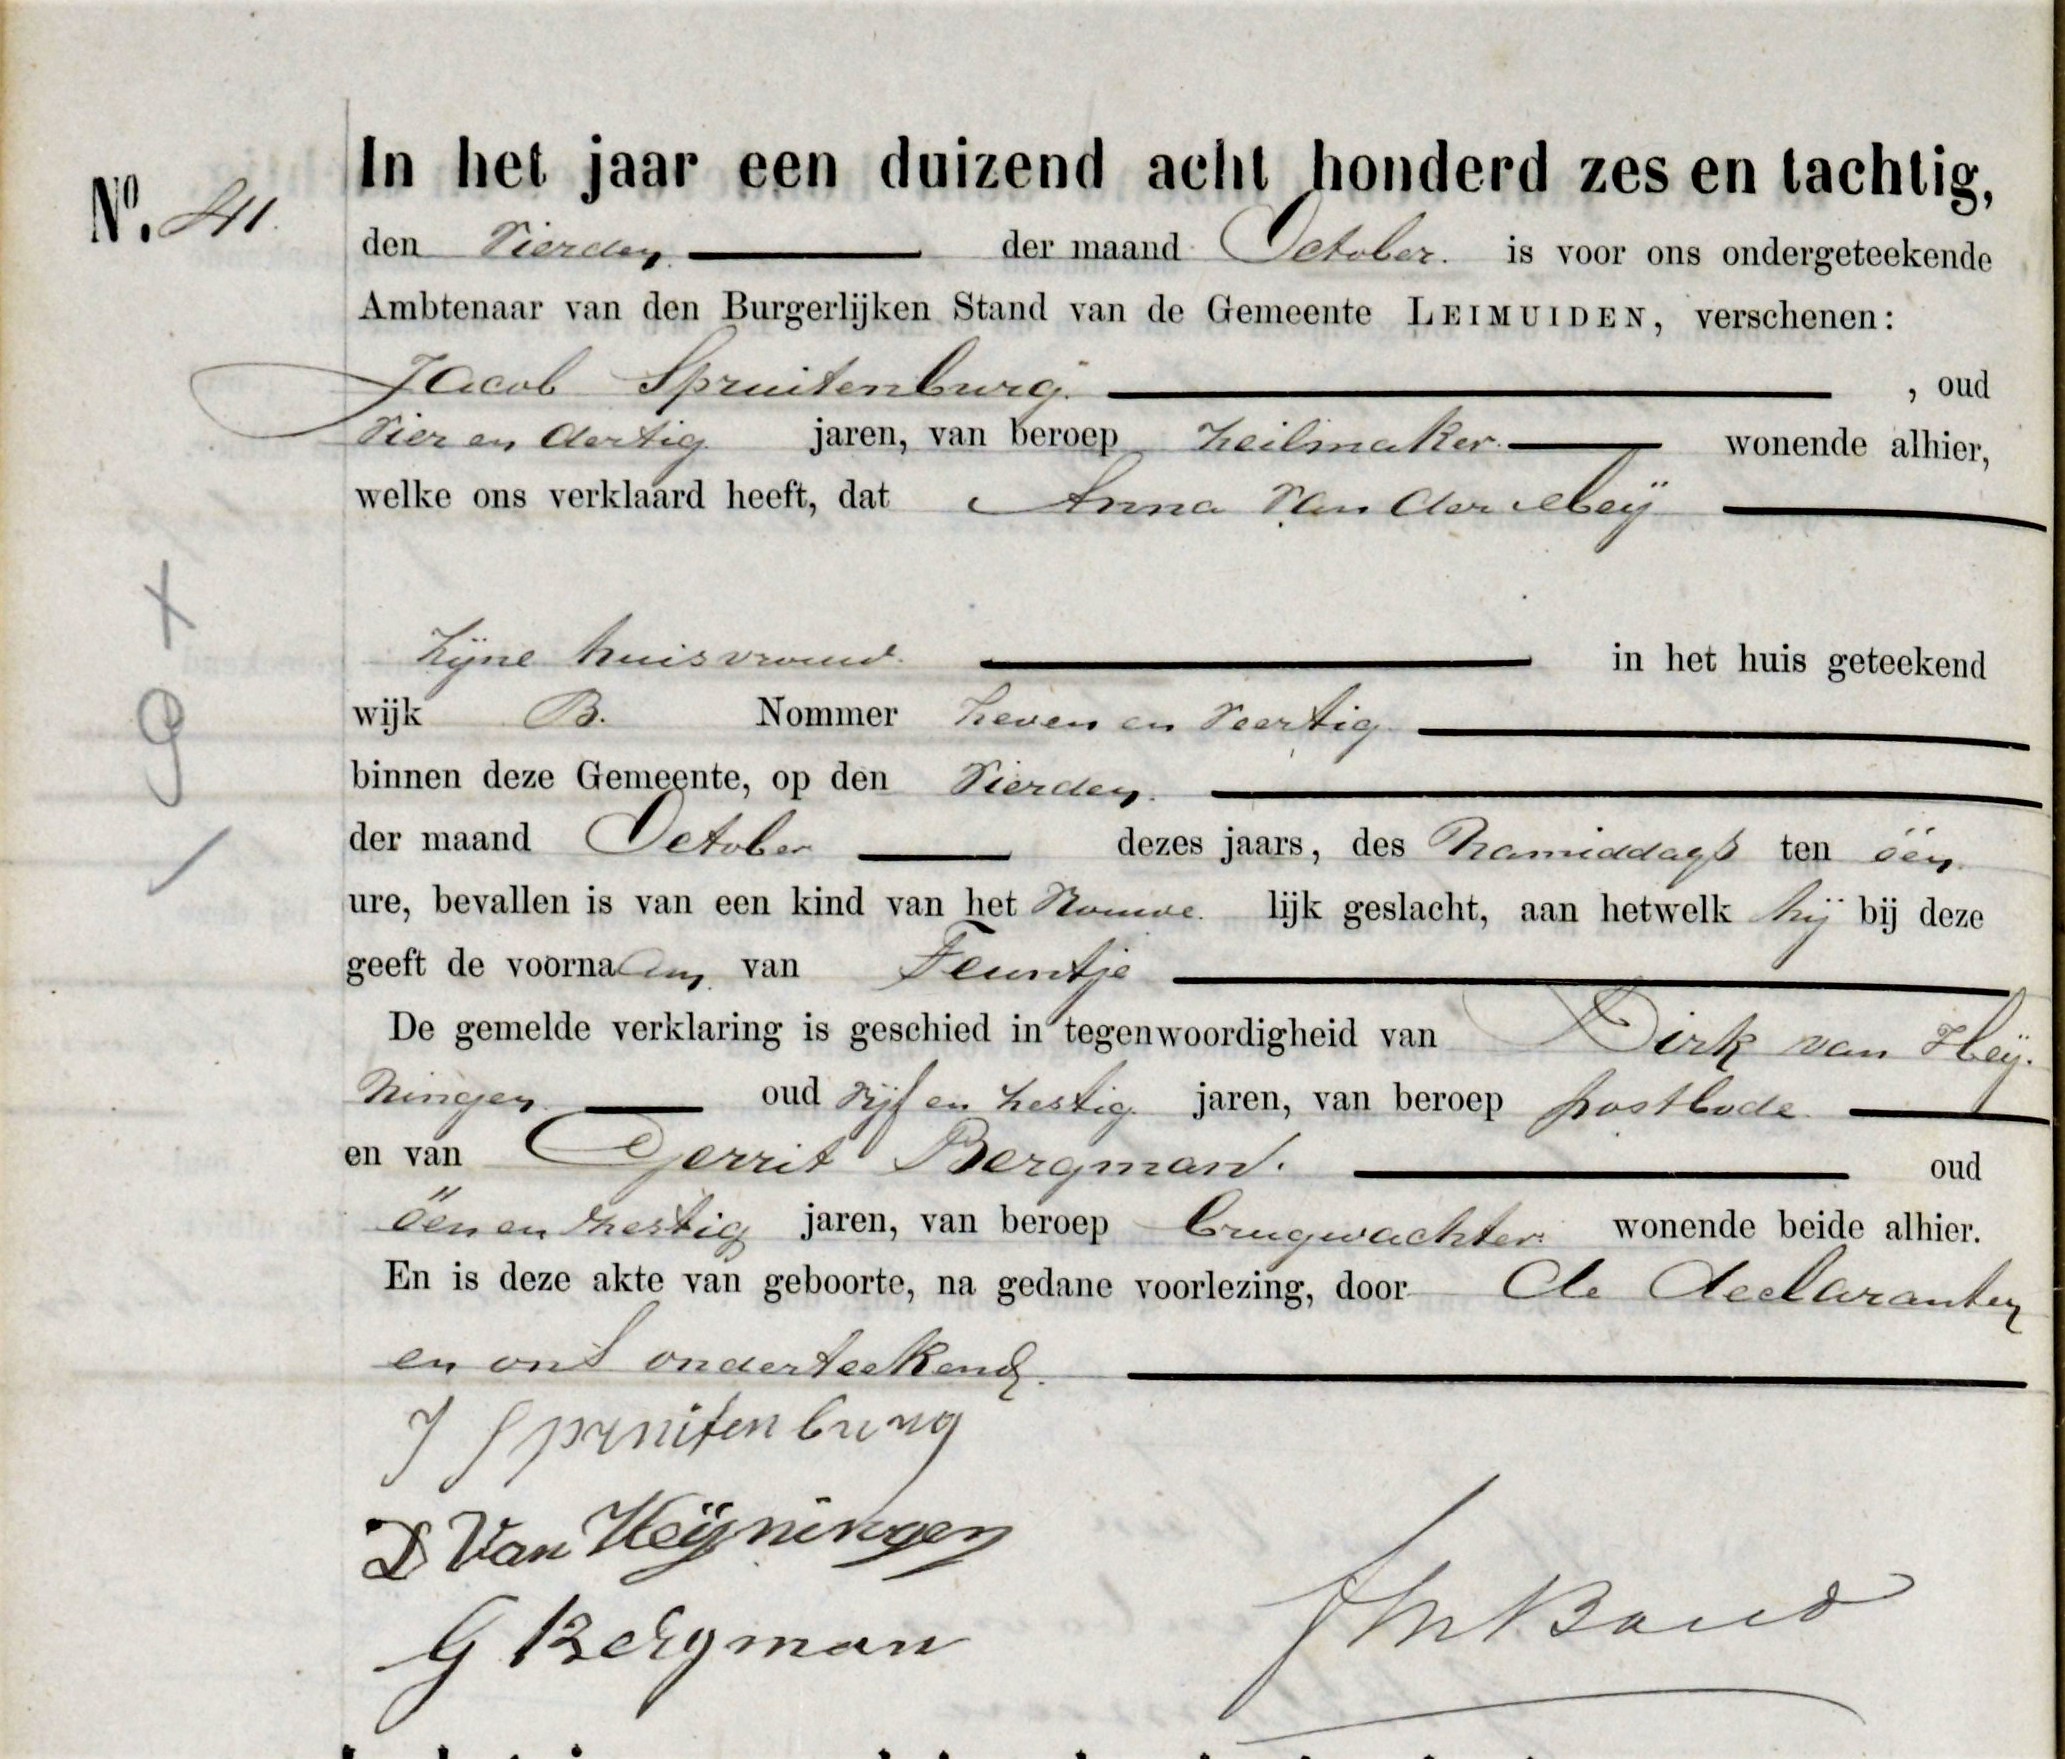 In het jaar een duizend acht honderd zes en tachtig,
No. 41.
den Vierden der maand October. is voor ons ondergeteekende
Ambtenaar van den Burgerlijken Stand van de Gemeente LEIMUIDEN, verschenen:
Jacob Spruitenburg. , oud
Vier en dertig jaren, van beroep zeilmaker. wonende alhier,
welke ons verklaard heeft, dat Anna van der Meij
zijne huisvrouw. in het huis geteekend
wijk B. Nommer zeven en veertig
binnen deze Gemeente, op den Vierden.
der maand October dezes jaars, des namiddags ten één
ure, bevallen is van een kind van het Vrouwe. lijk geslacht, aan hetwelk hij bij deze
geeft de voornaam van Teuntje
De gemelde verklaring is geschied in tegenwoordigheid van Dirk van Heij-
ningen oud vijf en zestig jaren, van beroep postbode
en van Gerrit Bergman. oud
één en zestig jaren, van beroep brugwachter wonende beide alhier.
En is deze akte van geboorte, na gedane voorlezing, door de declaranten
en ons onderteekend.
J Spruitenburg
D Van Heijningen
G Bergman